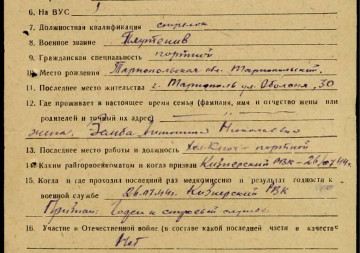 6. На ВУС 1
7. Должностная квалификация стрелка
8. Военное звание
9. Гражданская специальность портной
10. Место рождения Тарнопольская обл. Тарнопольский
11. Последнее место жительства г. Тарнополь ул. Оболоня, 30
12. Где проживает в настоящее время семья (фамилия, имя и отчество жены или
родителей и точный их адрес)
жена Николаевна
13. Последнее место работы и должность портной
14. Каким райгорвоенкоматом и когда призван Кизнерский РВК
15. Когда и где проходил последний раз медкомиссию и результат годности к
военной службе Кизнерский РВК
Признан: Годен к строевой службе
16. Участие в Отечественной войне (в составе какой последней части в качестве
Нет